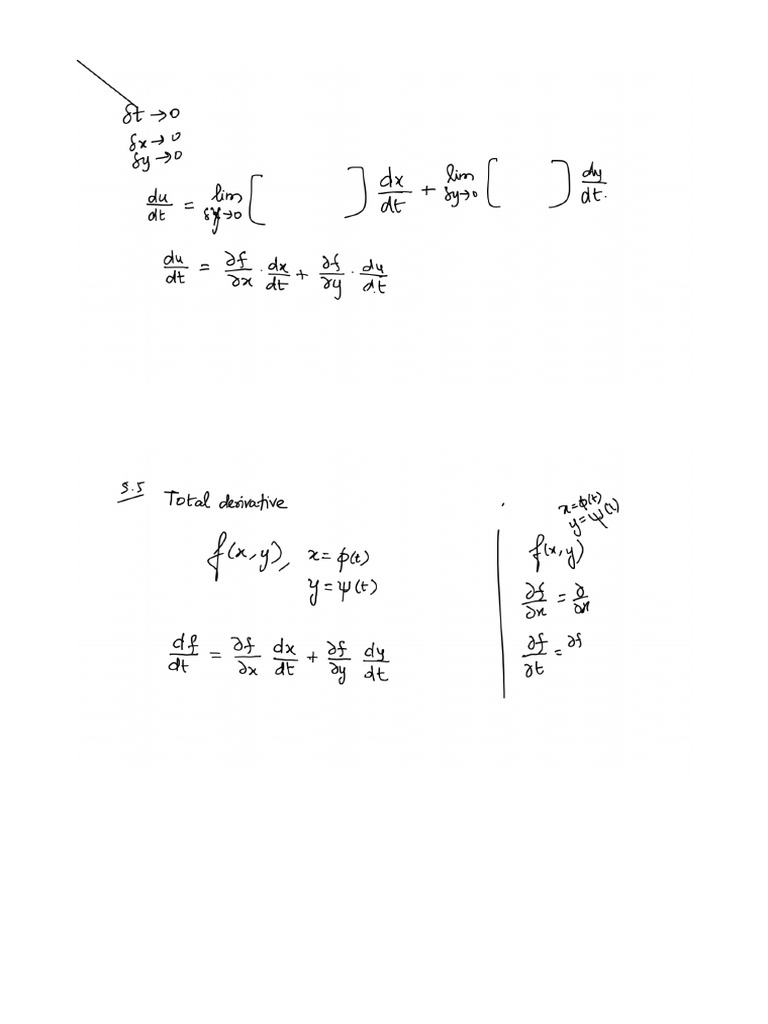 δt → 0
δx → 0
δy → 0
du/dt = lim δx→0 [ ] dx/dt + lim δy→0 [ ] dy/dt.
du/dt = ∂f/∂x · dx/dt + ∂f/∂y · dy/dt
5.5 Total derivative
f(x,y), x = φ(t)
y = ψ(t)
df/dt = ∂f/∂x dx/dt + ∂f/∂y dy/dt
x = φ(t)
y = ψ(t)
f(x,y)
∂f/∂x = ∂/∂x
∂f/∂t = ∂f